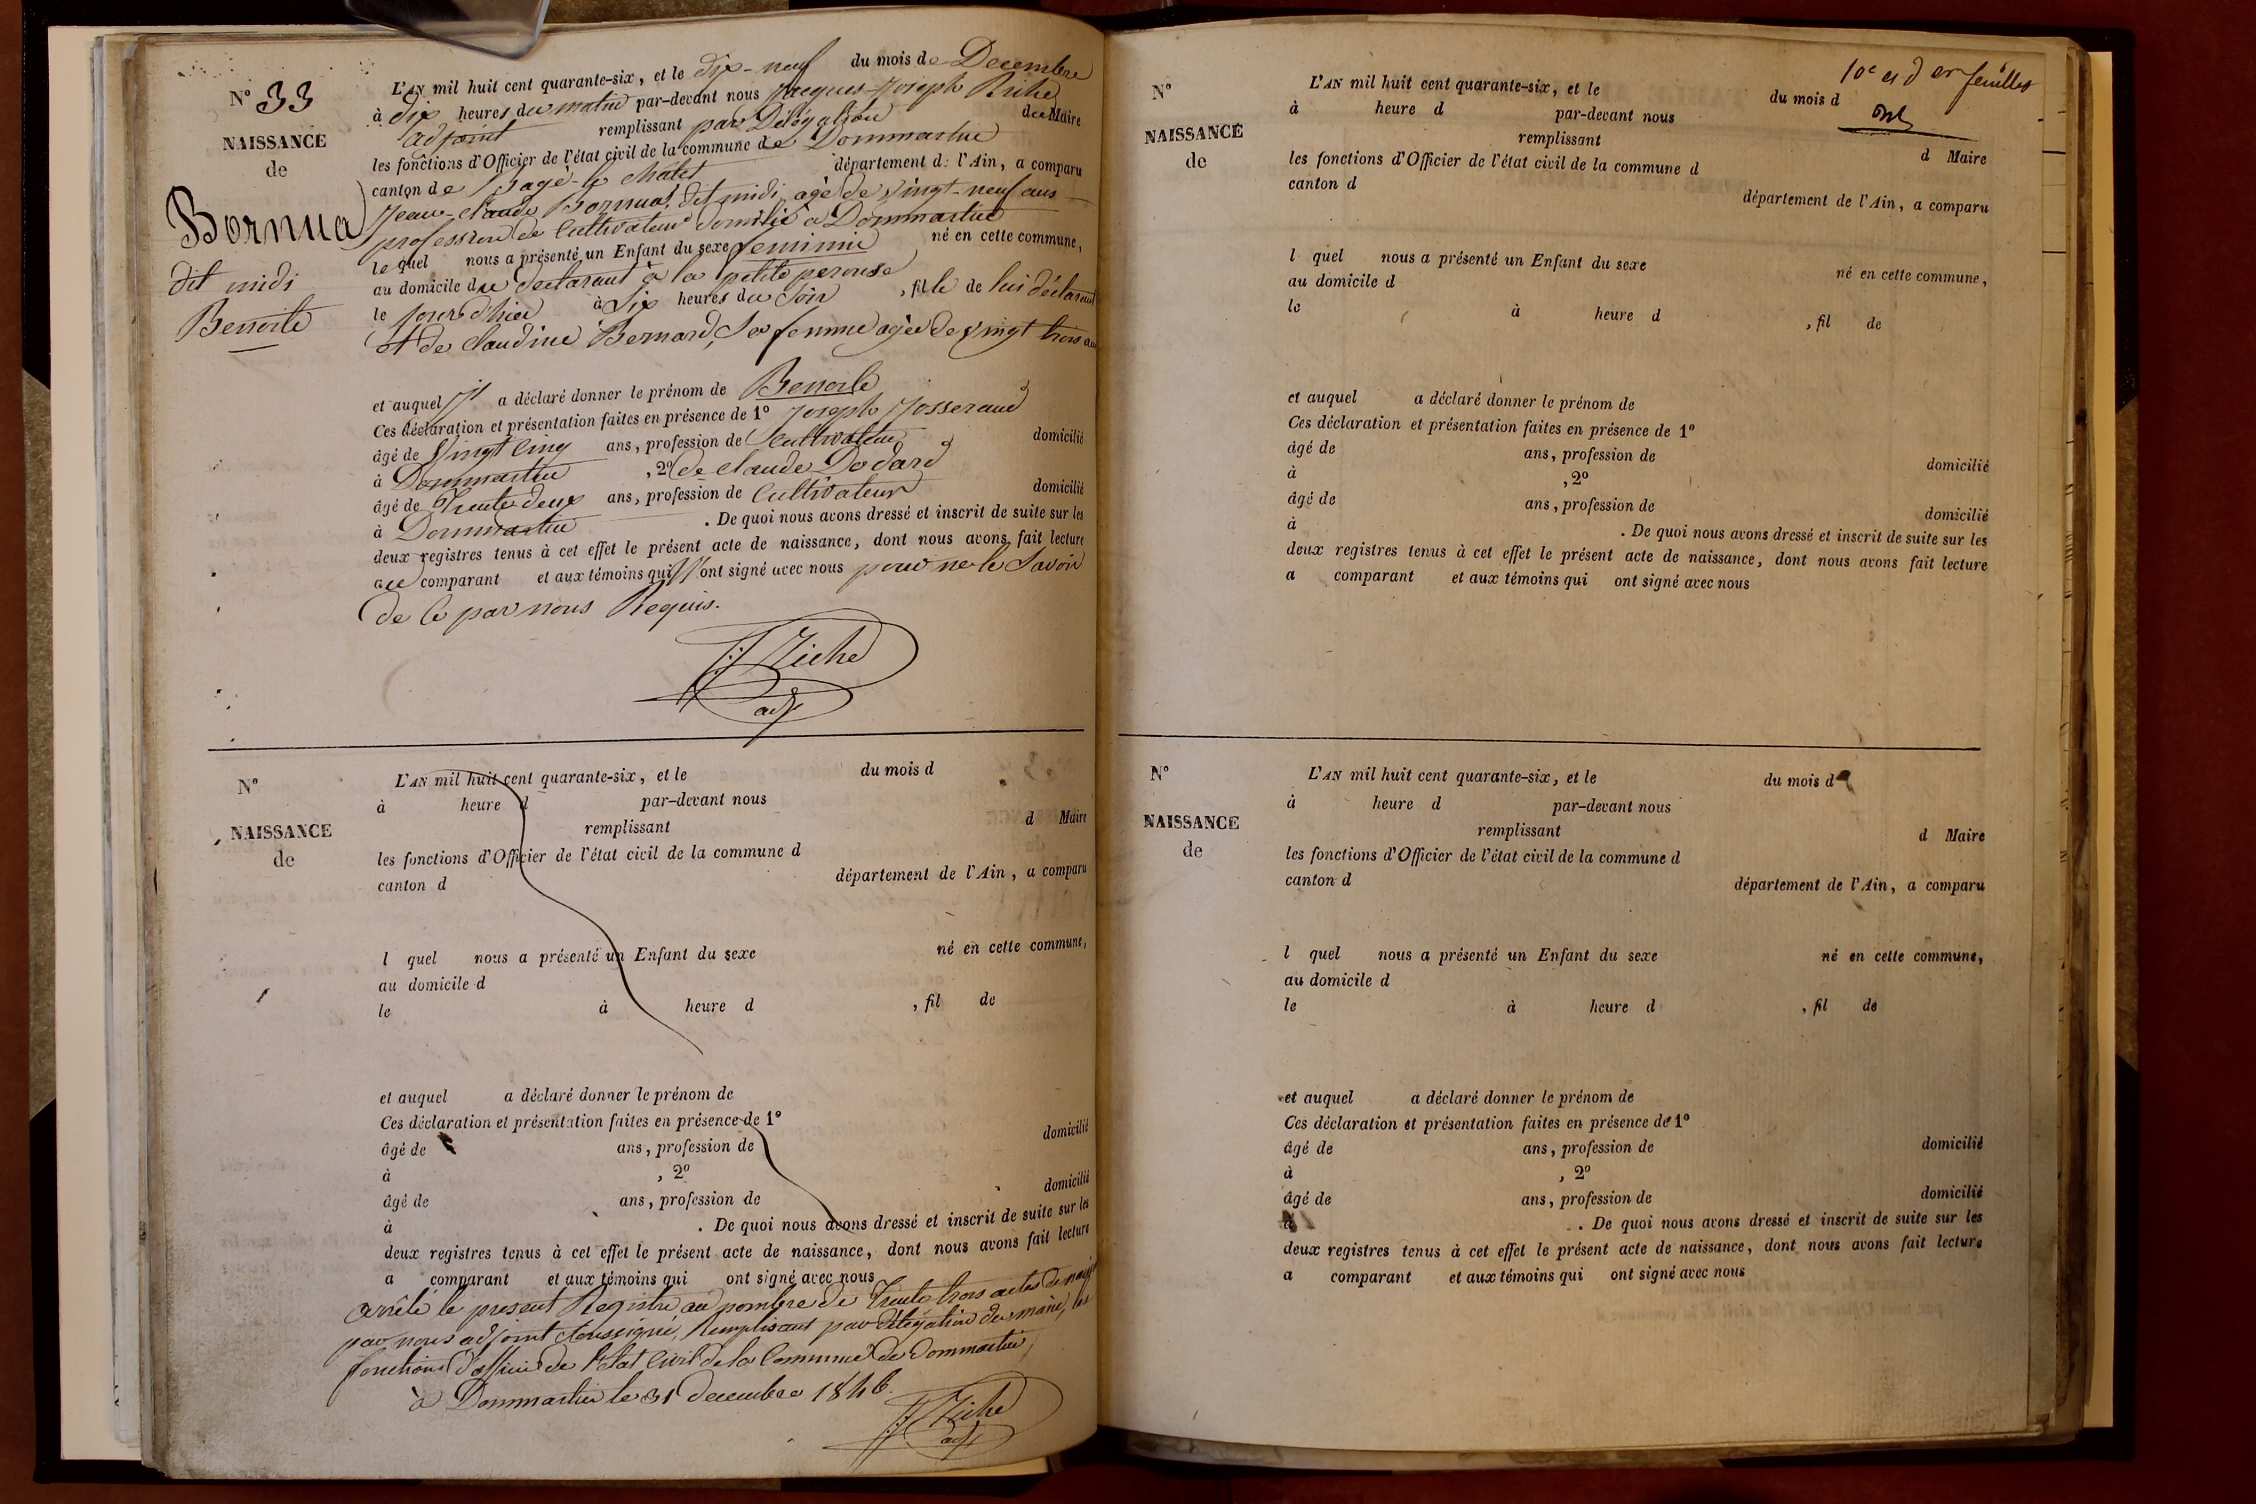 N° 33
NAISSANCE
de
Bornua
dit midi
Benoite
L'AN mil huit cent quarante-six, et le dix-neuf du mois de Decembre
à dix heures du matin par-devant nous Jacques-Joseph Riche
adjoint remplissant par Délégation du Maire
les fonctions d'Officier de l'état civil de la commune de Dommartin
canton de Bagé-le chatel département d: l'Ain, a comparu
Jean-claude Bornuat dit midi, agé de vingt-neuf ans
profession de Cultivateur domilié a Dommartin
le quel nous a présenté un Enfant du sexe feminin né en cette commune,
au domicile du declarant à la petite perouse
le jour d'hier à Six heures du Soir , fille de lui déclarant
et de claudine Bernard, Sa femme agée de vingt trois ans
et auquel il a déclaré donner le prénom de Benoite
Ces déclaration et présentation faites en présence de 1° Joseph Josserand
âgé de Vingt cinq ans, profession de Cultivateur domicilié
à Dommartin , 2° de claude Dodard
âgé de Trente deux ans, profession de Cultivateur domicilié
à Dommartin . De quoi nous avons dressé et inscrit de suite sur les
deux registres tenus à cet effet le présent acte de naissance, dont nous avons fait lecture
au comparant et aux témoins qui n'ont signé avec nous pour ne le Savoir
de Ce par nous Requis.
J: J Riche
adj
N°
NAISSANCE
de
L'AN mil huit cent quarante-six, et le du mois d
à heure d par-devant nous
remplissant d Maire
les fonctions d'Officier de l'état civil de la commune d
canton d département de l'Ain, a comparu
l quel nous a présenté un Enfant du sexe né en cette commune,
au domicile d
le à heure d , fil de
et auquel a déclaré donner le prénom de
Ces déclaration et présentation faites en présence de 1°
âgé de ans, profession de domicilié
à , 2°
âgé de ans, profession de domicilié
à . De quoi nous avons dressé et inscrit de suite sur les
deux registres tenus à cet effet le présent acte de naissance, dont nous avons fait lecture
a comparant et aux témoins qui ont signé avec nous
arrêté le present Registre au nombre de Trente trois actes de
par nous adjoint soussigné, Remplissant par délégation du maire, les
fonctions d'officier de l'Etat Civil de la Commune de Dommartin,
à Dommartin le 31 decembre 1846.
J: J Riche
adj
10e et der feuilles
N°
NAISSANCE
de
L'AN mil huit cent quarante-six, et le du mois d
à heure d par-devant nous
remplissant d Maire
les fonctions d'Officier de l'état civil de la commune d
canton d département de l'Ain, a comparu
l quel nous a présenté un Enfant du sexe né en cette commune,
au domicile d
le à heure d , fil de
et auquel a déclaré donner le prénom de
Ces déclaration et présentation faites en présence de 1°
âgé de ans, profession de domicilié
à , 2°
âgé de ans, profession de domicilié
à . De quoi nous avons dressé et inscrit de suite sur les
deux registres tenus à cet effet le présent acte de naissance, dont nous avons fait lecture
a comparant et aux témoins qui ont signé avec nous
N°
NAISSANCE
de
L'AN mil huit cent quarante-six, et le du mois d
à heure d par-devant nous
remplissant d Maire
les fonctions d'Officier de l'état civil de la commune d
canton d département de l'Ain, a comparu
l quel nous a présenté un Enfant du sexe né en cette commune,
au domicile d
le à heure d , fil de
et auquel a déclaré donner le prénom de
Ces déclaration et présentation faites en présence de 1°
âgé de ans, profession de domicilié
à , 2°
âgé de ans, profession de domicilié
à . De quoi nous avons dressé et inscrit de suite sur les
deux registres tenus à cet effet le présent acte de naissance, dont nous avons fait lecture
a comparant et aux témoins qui ont signé avec nous